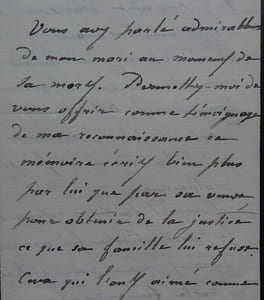 Vous avez parlé admirablem
de mon mari au moment de
sa mort. Permettez-moi de
vous offrir comme témoignage
de ma reconnaissance ce
mémoire écrit bien plus
par lui que par sa veuve
pour obtenir de la justice
ce que sa famille lui refuse.
Ceux qui l'ont aimé comme